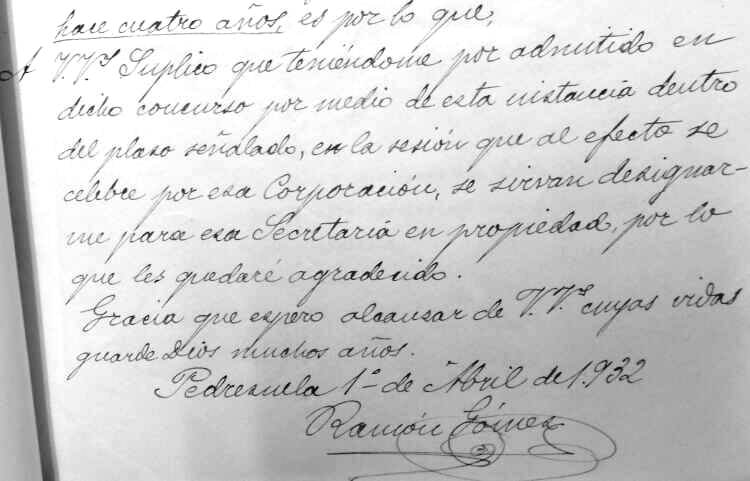 hace cuatro años, es por lo que,
A V.V.s Suplico que teniéndome por admitido en
dicho concurso por medio de esta instancia dentro
del plaso señalado, en la sesión que al efecto se
celebre por esa Corporación, se sirvan designar-
me para esa Secretaría en propiedad, por lo
que les quedaré agradecido.
Gracia que espero alcansar de V.V.s cuyas vidas
guarde Dios muchos años.
Pedrezuela 1º de Abril de 1.932
Ramón Gómez